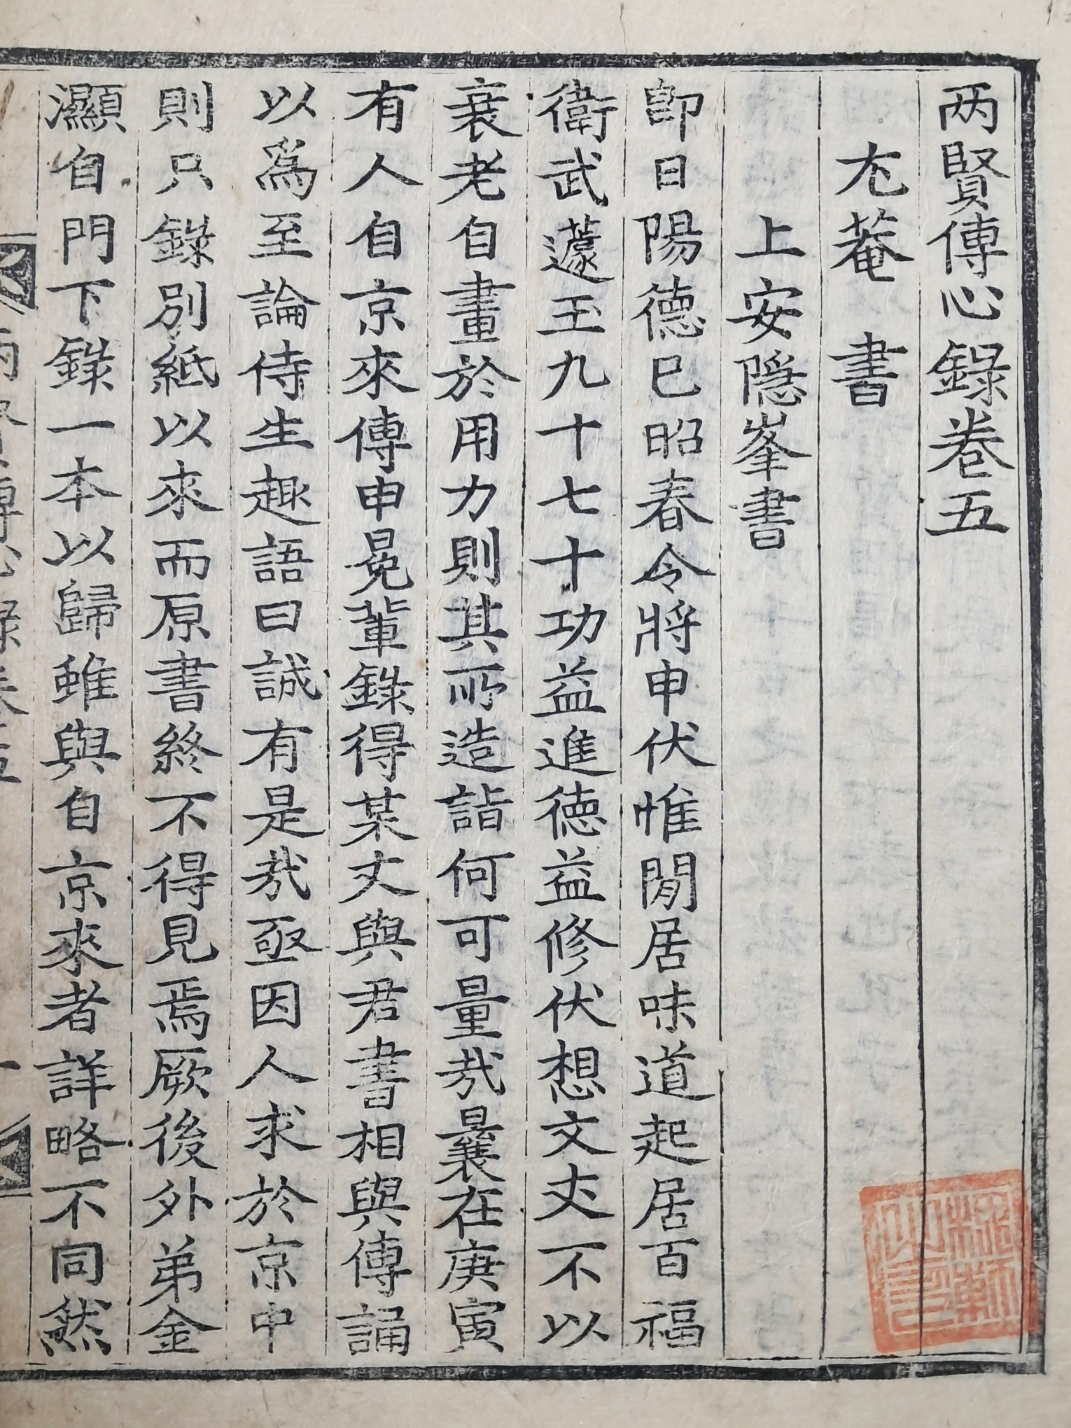 两賢傳心錄卷五
尤菴 書
上安隱峯書
即日陽德已昭春令將申伏惟閒居味道起居百福
衛武蘧玉九十七十功益進德益修伏想文丈不以
衰老自畫於用力則其所造詣何可量哉曩在庚寅
有人自京來傳申冕輩錄得某丈與君書相與傳誦
以爲至論侍生趣語曰誠有是哉亟因人求於京中
則只錄別紙以來而原書終不得見焉厥後外弟金
灦自門下錄一本以歸雖與自京來者詳略不同然
兩賢傳心錄卷五
一